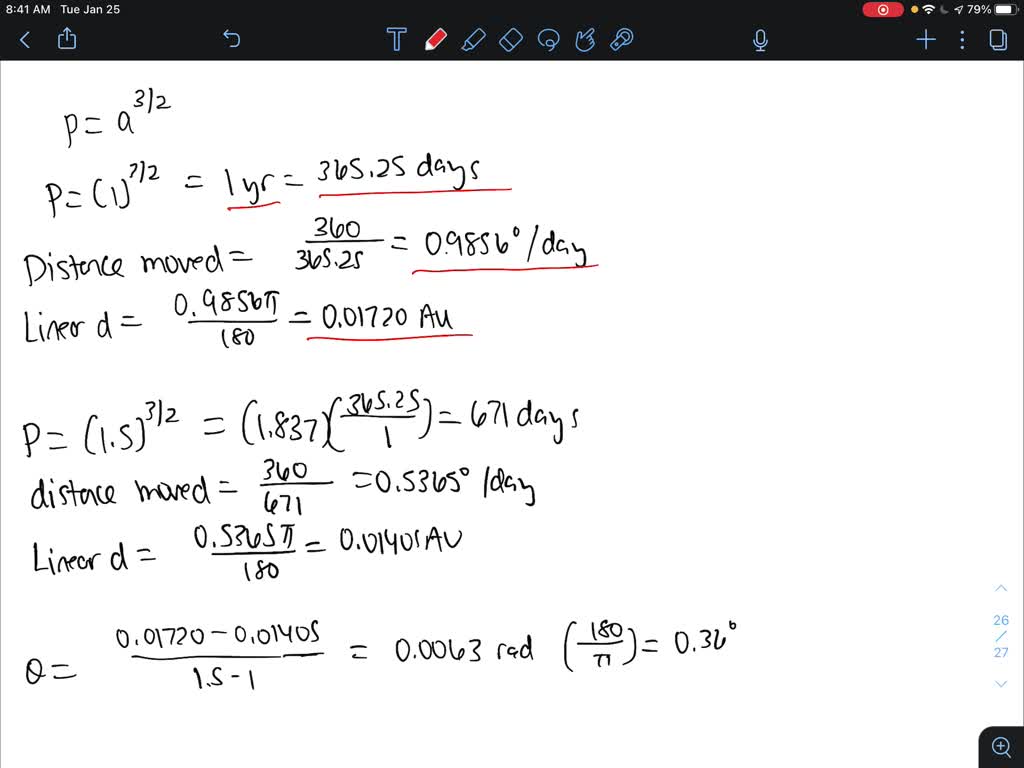 8:41 AM Tue Jan 25 79%
P = a^3/2
P = (1)^3/2 = 1 yr = 365.25 days
Distance moved = 360/365.25 = 0.9856°/day
Linear d = 0.9856π/180 = 0.01720 AU
P = (1.5)^3/2 = (1.837)(365.25/1) = 671 days
distance moved = 360/671 = 0.5365°/day
Linear d = 0.5365π/180 = 0.01405 AU
θ = 0.01720 - 0.01405/1.5 - 1 = 0.0063 rad (180/π) = 0.36°
26
/
27